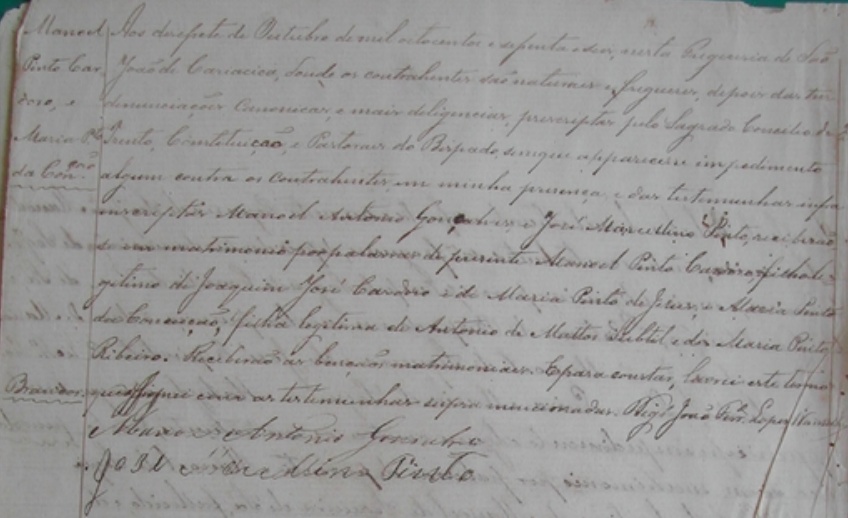 Manoel
Pinto Car-
dozo, e
Maria P.to
da Con.ção
Brancos.
Aos desesete de Outubro de mil oitocentos e setenta e seis, nesta Freguezia de São
João de Cariacica, donde os contrahentes são naturaes e freguezes, depois das tres
denunciações Canonicas, e mais deligencias, prescriptas pelo Sagrado Concilio de
Trento, Constituição, e Pastoraes do Bispado, sem que apparecesse impedimento
algum contra os contrahentes, em minha presença, e das testemunhas infra
inscriptas Manoel Antonio Gonçalves, e José Marcelino Pinto, receberão
se em matrimonio por palavras de presente Manoel Pinto Cardozo, filho le-
gitimo de Joaquim José Cardozo e de Maria Pinto de Jesus, e Maria Pinto
da Conceição, filha legitima de Antonio de Mattos Subtil e de Maria Pinto
Ribeiro. Receberão as bençãos matrimoniaes. E para constar, lavrei este termo
que assignei com as testemunhas supra mencionadas. Vig.º João Lopes
Antonio
José Pinto